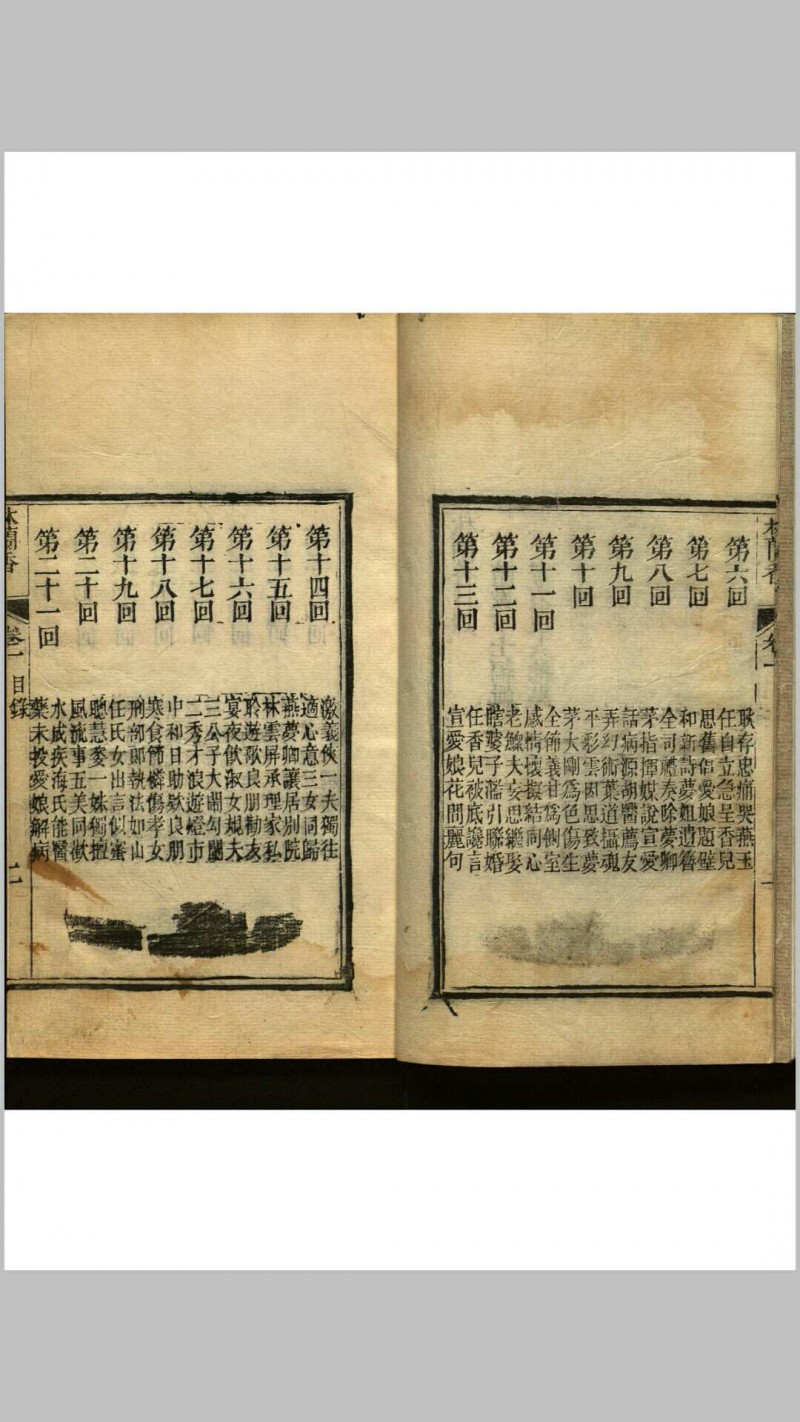 林蘭香
卷一
第六回
耿存忠痛哭燕玉
任自立急呈香兒
第七回
思舊侶愛娘題壁
和新詩夢姐遺簪
第八回
全司禮奏除夢卿
茅指揮媒說宣愛
第九回
話病源胡醫薦友
弄幻術葉道攝魂
第十回
平彩雲因思致夢
茅大剛爲色傷生
第十一回
全佈義甘爲側室
感情懷擬結同心
第十二回
老鰥夫妄思繼娶
瞎婆子濫引聯婚
第十三回
任香兒被底讒言
宣愛娘花間麗句
一
第十四回
激義俠一夫獨往
適心意三女同歸
第十五回
燕夢卿讓居別院
林雲屏承理家私
第十六回
聆遊歌良朋勸友
宴夜飲淑女規夫
第十七回
三公子大鬧勾闌
二秀才浪遊燈市
第十八回
中和日助欵良朋
寒食節憐傷孝女
第十九回
刑部郎執法如山
任氏女出言似蜜
第二十回
聰慧姿一姝獨擅
風流事五美同歡
第二十一回
水成疾海氏能醫
藥未投愛娘解病
林蘭香
卷一
目錄
二